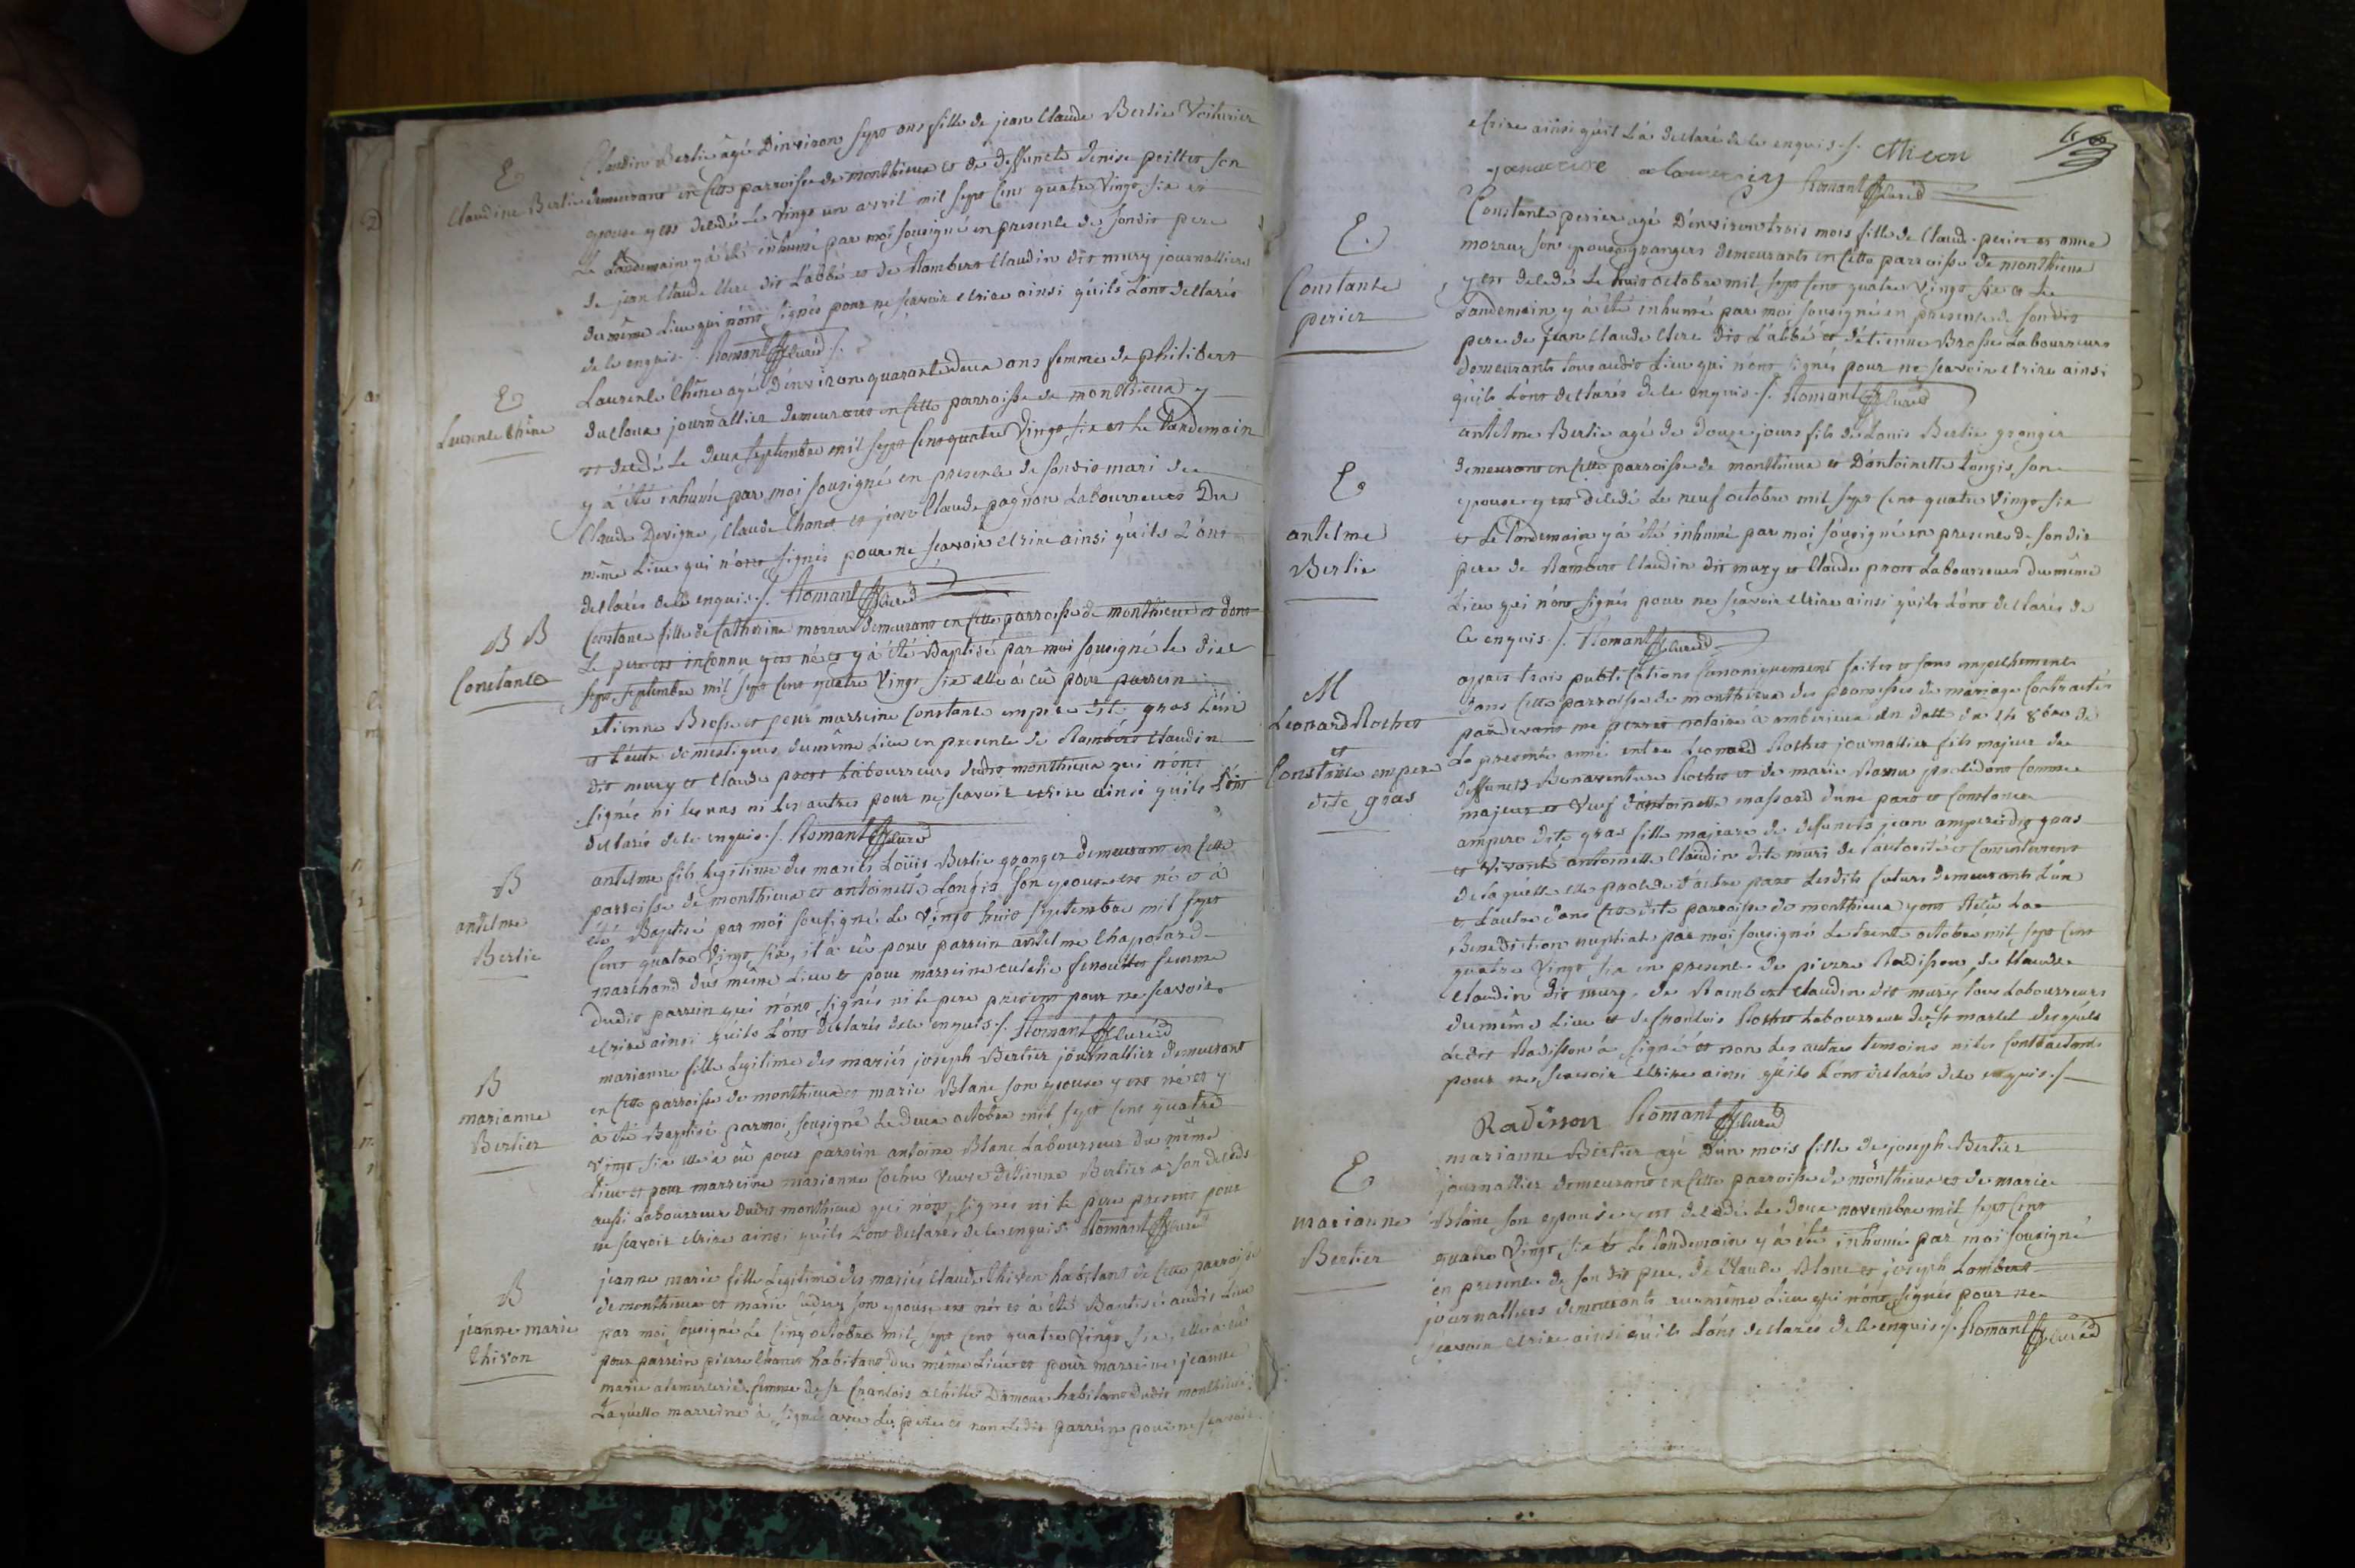 E
Claudine Berlie
Claudine Berlie agé Dénviron sept ans fille de jean Claude Berlie Voiturier
demeurant en cette parroisse de monthieux et de deffuncte denise peillet son
epouse y est decedé Le Vingt un avril mil sept cent quatre Vingt six et
Le Landemain y á été inhumé par moi sousigné en presence de sondit pere
de jean Claude Clere dit L'abbé et de Rambert Claudin dit mury journalliers
du même Lieu qui n'ont signés pour ne scavoir ecrire ainsi qu'ils L'ont declarés
de ce enquis./. Romant Curéd ./.
E
Laurence Chêne
Laurence Chêne agé D'environ quarante deux ans femme de philibert
ducloux journallier demeurant en cette parroisse de monthieux y
est decedé Le deux septembre mil sept Cent quatre Vingt six et Le Landemain
y á été inhumé par moi sousigné en presence de sondit mari de
Claude Devigne, Claude Chanet et jean Claude pagnon Labourreurs Du
même Lieu qui n'ont signés pour ne scavoir ecrire ainsi qu'ils L'ont
declarés de ce enquis ./. Romant Curéd
B B
Constance
Constance fille de Catherine morrer demeurant en cette parroisse de monthieux et dont
Le pere est inconnu y est née et y á été Baptisé par moi sousigné le dix
sept septembre mil sept Cent quatre Vingt six elle á eû pour parrein
etienne Brosse et pour marreine Constance empere dite gras L'un
et L'autre domestiques du même Lieu en presence de Rambert Claudin
dit mury et Claude prost Labourreurs dudit monthieux qui n'ont
signés ni les uns ni Les autres pour ne scavoir ecrire ainsi qu'ils L'ont
declarés de ce enquis ./. Romant Curéd
B
antelme
Berlie
antelme fils legitime des mariés Loüis Berlie granger demeurant en cette
parroisse de monthieux et antoinette Longis son epouse est né et á
été Baptisé par moi sousigné Le Vingt huit septembre mil sept
Cent quatre Vingt six, il á eû pour parrein antelme Chapolard
marchand du même Lieu et pour marreine eulalie femme
dudit parrein qui n'ont signés ni le pere présent pour ne scavoir
ecrire ainsi qu'ils L'ont declarés de ce enquis ./. Romant Curéd
B
marianne
Bertier
marianne fille Legitime des mariés joseph Bertier journallier demeurant
en cette parroisse de monthieux et marie Blanc son epouse y est née et y
á été Baptisé par moi sousigné Le deux octobre mil sept cent quatre
Vingt six elle á eû pour parrein antoine Blanc Labourreur du même
Lieu et pour marreine marianne Cochu veuve d'etienne Bertier á son deceds
aussi Labourreur dudit monthieux qui n'ont signés ni le pere present pour
ne scavoir ecrire ainsi qu'ils L'ont declarés de ce enquis Romant Curéd
B
jeanne marie
Chivon
jeanne marie fille Legitime des mariés Claude Chivon habitant de cette parroisse
de monthieux et marie son epouse est née et á été Baptisé audit Lieu
par moi sousigné Le Cinq octobre mil sept cent quatre Vingt six, elle á eû
pour parrein pierre Chanet habitant du même Lieu et pour marreine jeanne
marie femme de Sr francois achille Damour habitant dudit monthieux
Laquelle marreine á signé avec Le pere et non Ledit parrein pour ne scavoir
ecrire ainsi qu'il L'á declaré de ce enquis ./. Chivon
Romant Curéd
E
Constance
perier
Constance perier agé D'environ trois mois fille de Claude perier et anne
morrug son epouse grangers demeurants en cette parroisse de monthieux
y est decedé Le huit octobre mil sept cent quatre Vingt six et Le
Landemain y á été inhumé par moi sousigné en presence de sondit
pere de jean Claude Clere dit L'abbé et d'etienne Brosse Labourreurs
demeurants tous audit Lieu qui n'ont signés pour ne scavoir ecrire ainsi
qu'ils L'ont declarés de ce enquis ./. Romant Curéd
E
antelme
Berlie
antelme Berlie agé de Douze jours fils de Louis Berlie granger
demeurant en cette parroisse de monthieux et D'antoinette Longis son
epouse y est decedé Le neuf octobre mil sept Cent quatre Vingt six
et Le Landemain y á été inhumé par moi sousigné en presence de sondit
pere de Rambert Claudin dit mury et Claude prost Labourreurs du même
Lieu qui n'ont signés pour ne scavoir ecrire ainsi qu'ils L'ont declarés de
Ce enquis ./. Romant Curéd
M
Leonard Rochet
et
Constance empere
dite gras
apres trois publications Canoniquement faites et sans empechement
dans cette parroisse de monthieux des promesses de mariage Contractés
pardevant me notaire á amberieux en datte du 14 8bre de
La presente anné entre Leonard Rochet journallier fils majeur de
deffuncts Bonaventure Rochet et de marie procedant comme
majeur et Veuf d'antoinette massard d'une part et Constance
ampere dite gras fille majeure de deffunct jean ampere dit gras
et Vivante antoinette Claudin dite muri de l'autorité et Consentement
de laquelle elle procede d'autre part Lesdits futurs demeurants L'un
et L'autre dans cette dite parroisse de monthieux y ont Recû La
Benediction nuptiale par moi sousigné Le trente octobre mil sept cent
quatre Vingt six en presence de pierre Radisson, de Claude
Claudin dit mury, de Rambert Claudin dit mury tous Labourreurs
du même Lieu et de francois Rochet Labourreur de St marcel desquels
Ledit Radisson á signé et non Les autres temoins ni les Contractants
pour ne scavoir ecrire ainsi qu'ils L'ont declarés de ce enquis ./.
Radisson Romant Curéd
E
marianne
Bertier
marianne Bertier agé D'un mois fille de joseph Bertier
journallier demeurant en cette parroisse de monthieux et de marie
Blanc son epouse y est decedé Le deux novembre mil sept cent
quatre Vingt six et Le landemain y á été inhumé par moi sousigné
en presence de son dit pere, de Claude Blanc et joseph Lambert
journalliers demeurants au même Lieu qui n'ont signés pour ne
scavoir ecrire ainsi qu'ils L'ont declarés de ce enquis ./. Romant Curéd